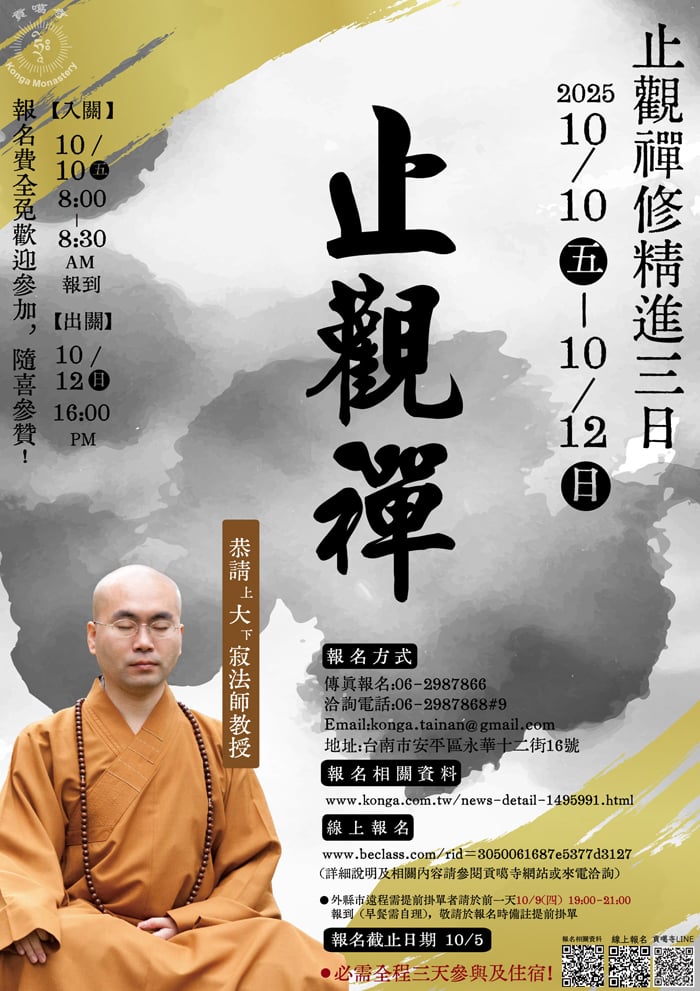 貢噶寺
Konga Monastery
止觀禪修精進三日
2025
10/10
五
—
10/12
日
止觀禪
【入關】
10/
10 五
8:00
—
8:30
AM
報到
【出關】
10/
12 日
16:00
PM
報名費全免歡迎參加，隨喜參贊！
恭請上大下寂法師教授
報名方式
傳真報名:06-2987866
洽詢電話:06-2987868#9
Email:konga.tainan@gmail.com
地址:台南市安平區永華十二街16號
報名相關資料
www.konga.com.tw/news-detail-1495991.html
線上報名
www.beclass.com/rid=3050061687e5377d3127
(詳細說明及相關內容請參閱貢噶寺網站或來電洽詢)
●外縣市遠程需提前掛單者請於前一天10/9(四) 19:00-21:00
報到（早餐需自理），敬請於報名時備註提前掛單
報名截止日期 10/5
●必需全程三天參與及住宿!
報名相關資料
線上報名
貢噶寺LINE